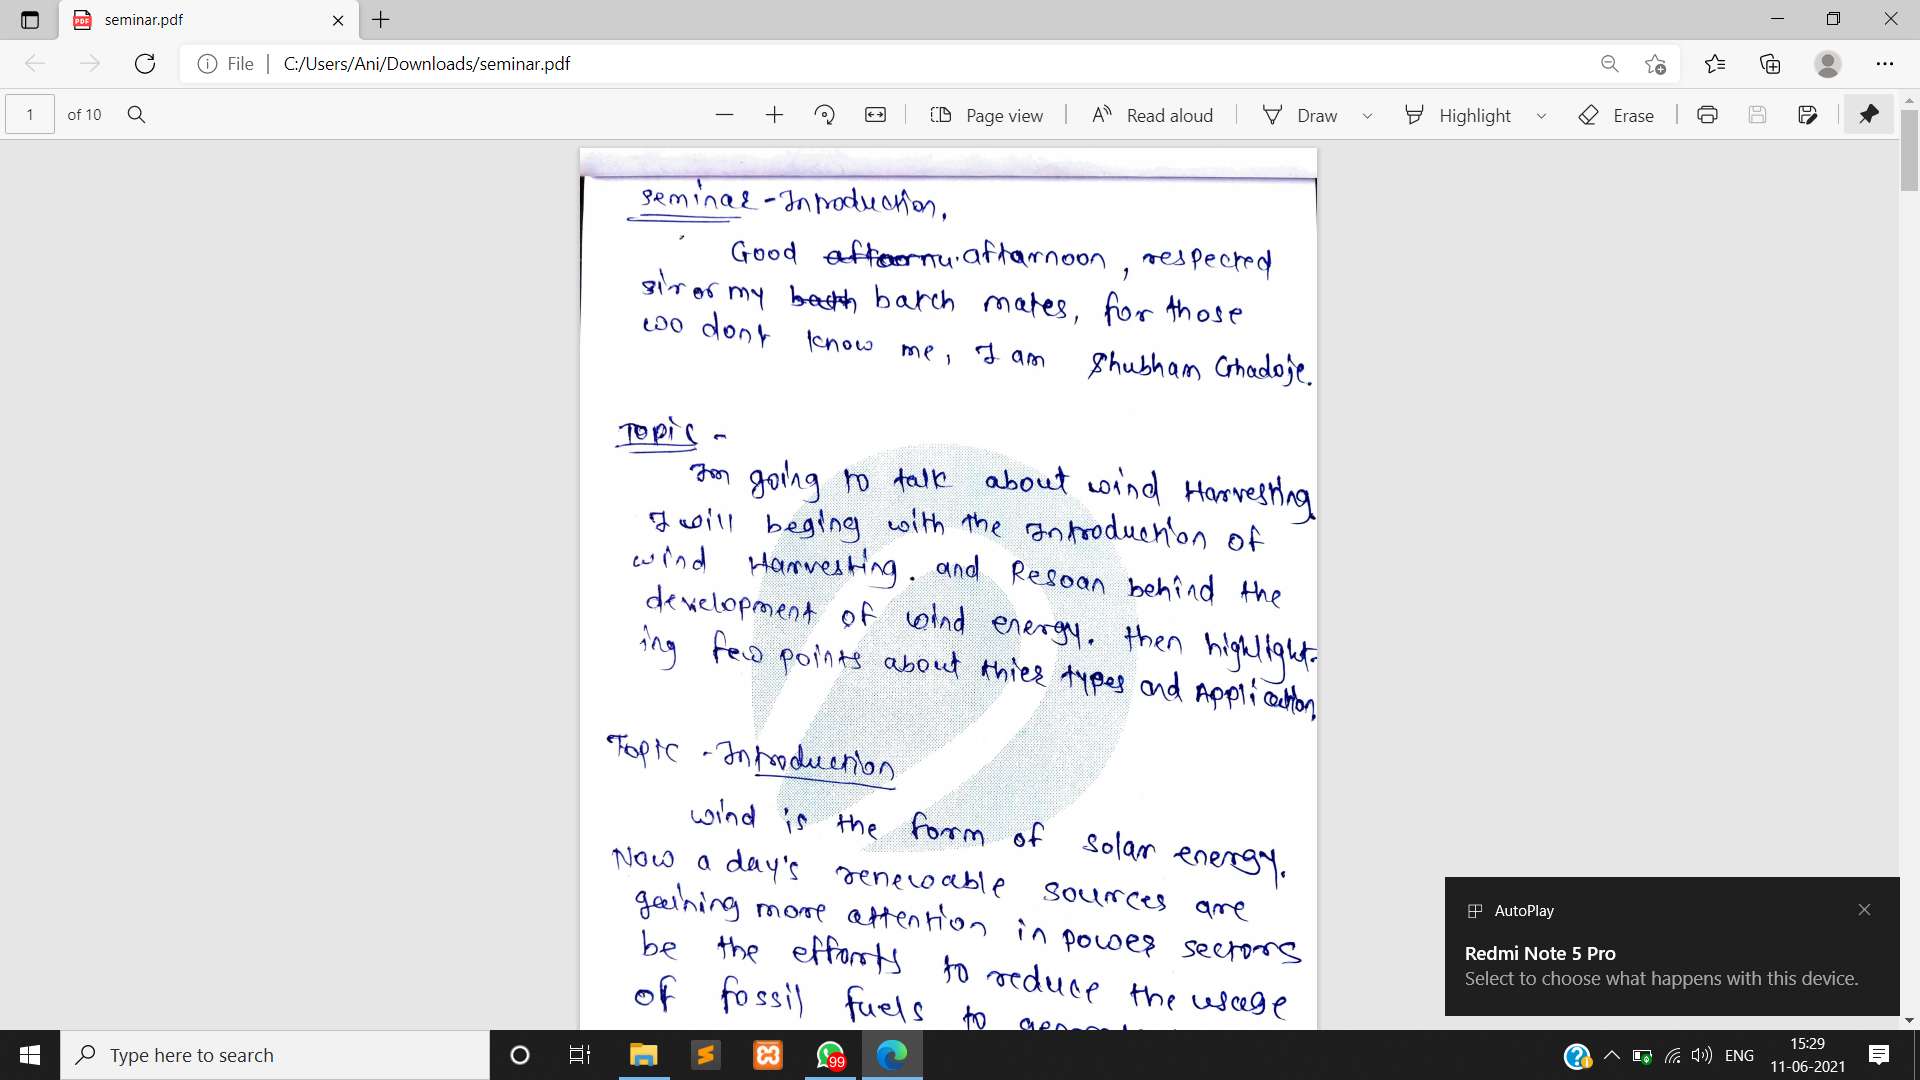 seminar.pdf
File
C:/Users/Ani/Downloads/seminar.pdf
1 of 10
Page view
Read aloud
Draw
Highlight
Erase
Seminar - Introduction.
Good afternoon, respected
sir or my batch mates, for those
woo dont know me, I am Shubham Ghadoje.
Topic -
Im going to talk about wind Harvesting
I will beging with the Introduction of
wind Harvesting. and Resoan behind the
development of wind energy. then highlight-
ing few points about thier types and Application.
Topic - Introduction
wind is the form of solar energy.
Now a day's renewable sources are
gaining more attention in power sectors
be the efforts to reduce the usage
of fossil fuels to
AutoPlay
Redmi Note 5 Pro
Select to choose what happens with this device.
Type here to search
99
ENG
15:29
11-06-2021